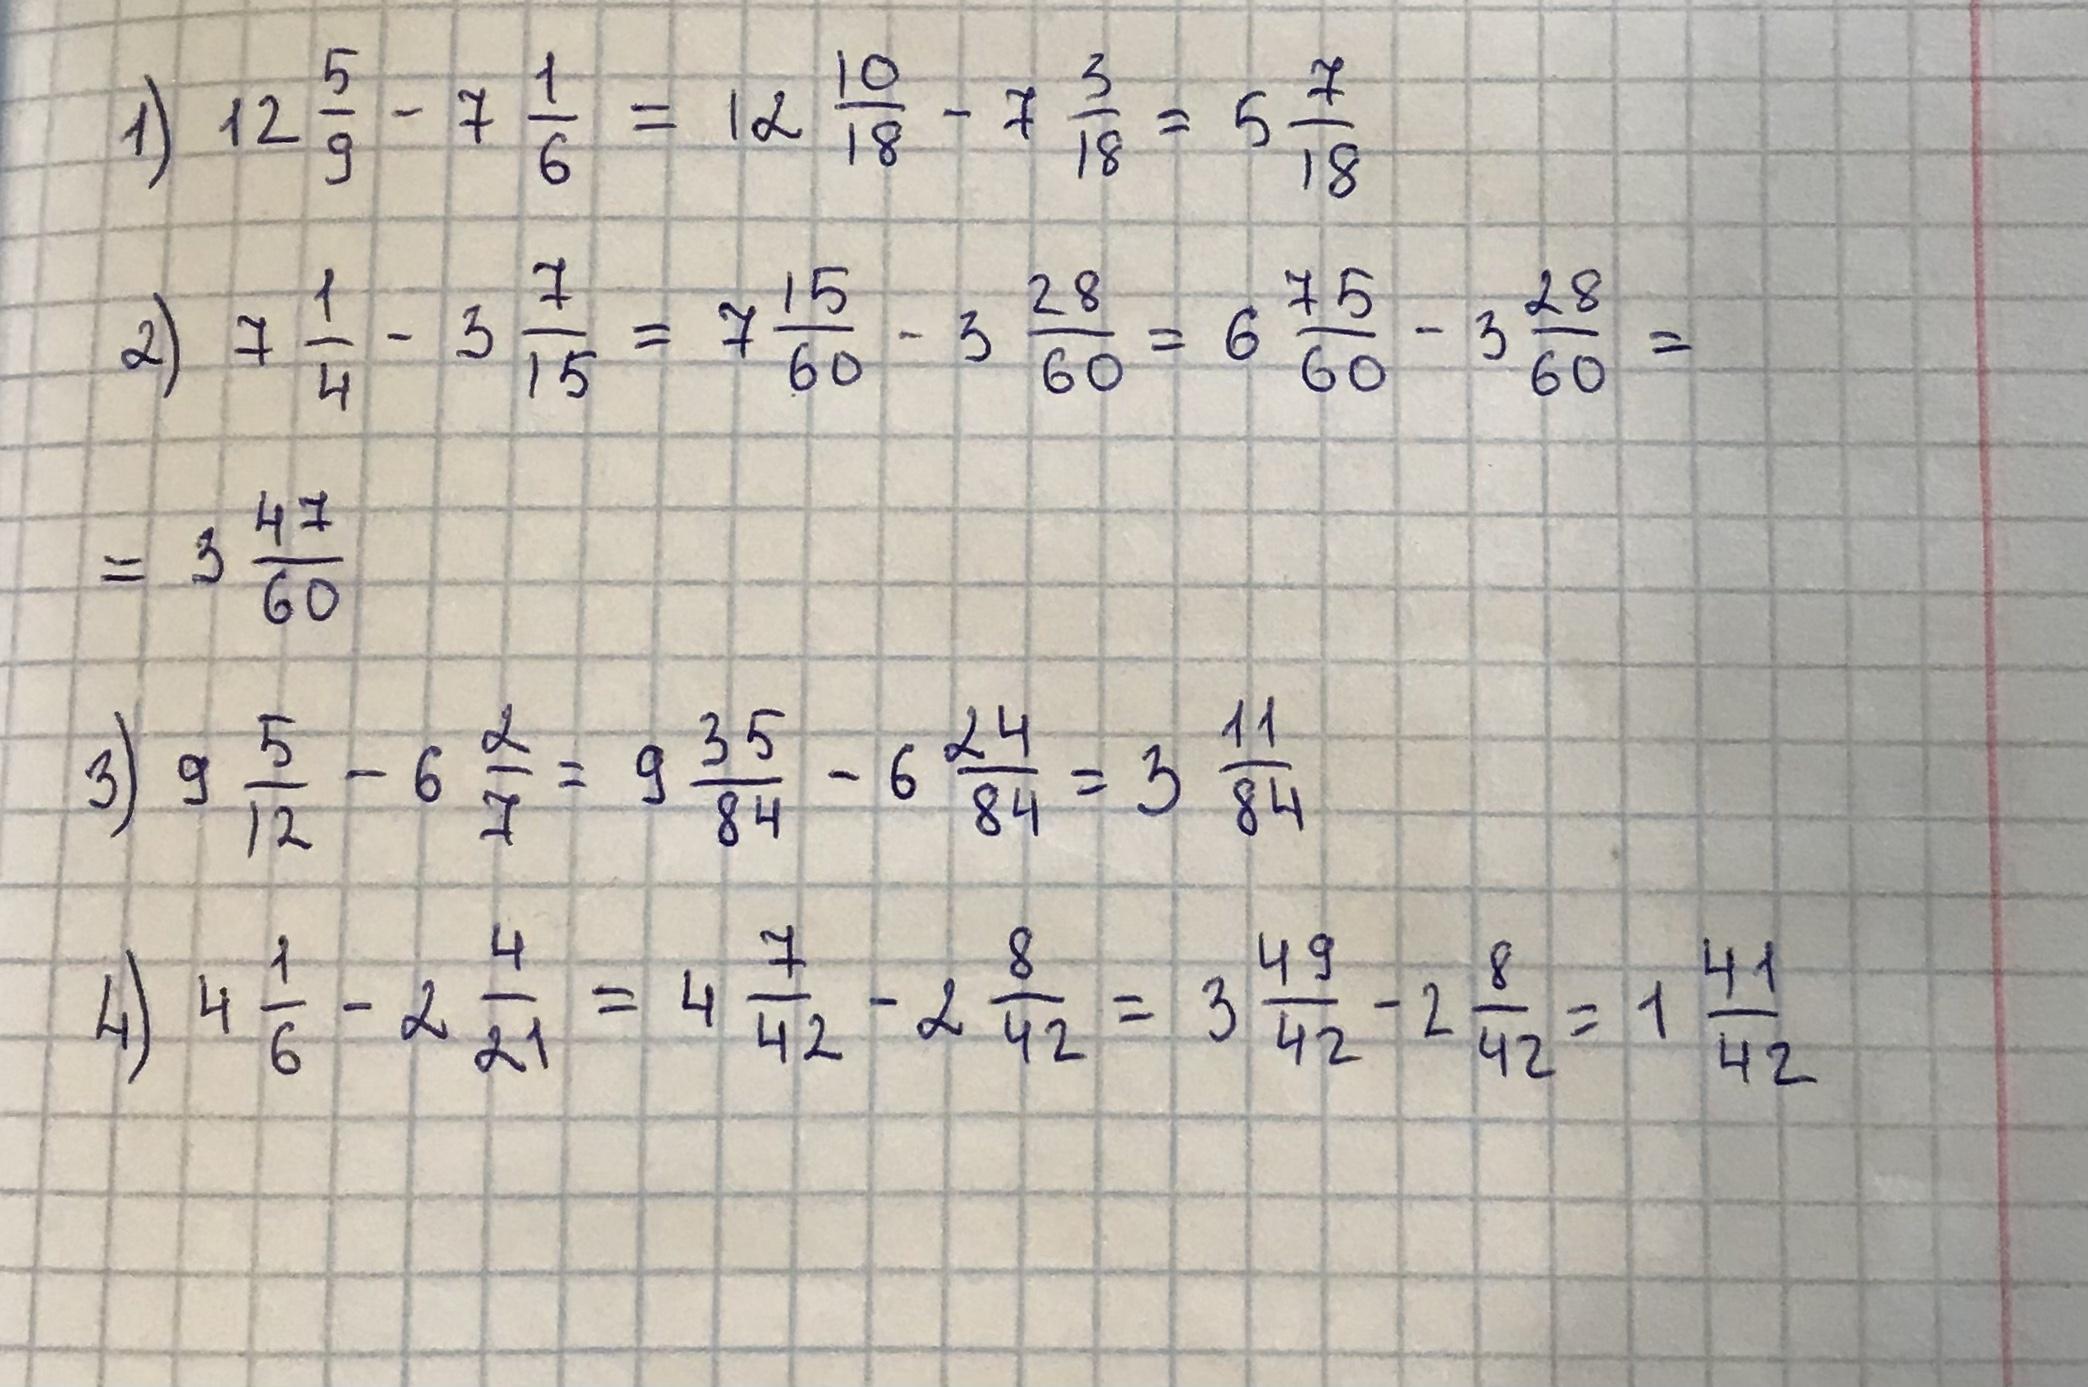 1) 12 5/9 - 7 1/6 = 12 10/18 - 7 3/18 = 5 7/18
2) 7 1/4 - 3 7/15 = 7 15/60 - 3 28/60 = 6 75/60 - 3 28/60 =
= 3 47/60
3) 9 5/12 - 6 2/7 = 9 35/84 - 6 24/84 = 3 11/84
4) 4 1/6 - 2 4/21 = 4 7/42 - 2 8/42 = 3 49/42 - 2 8/42 = 1 41/42